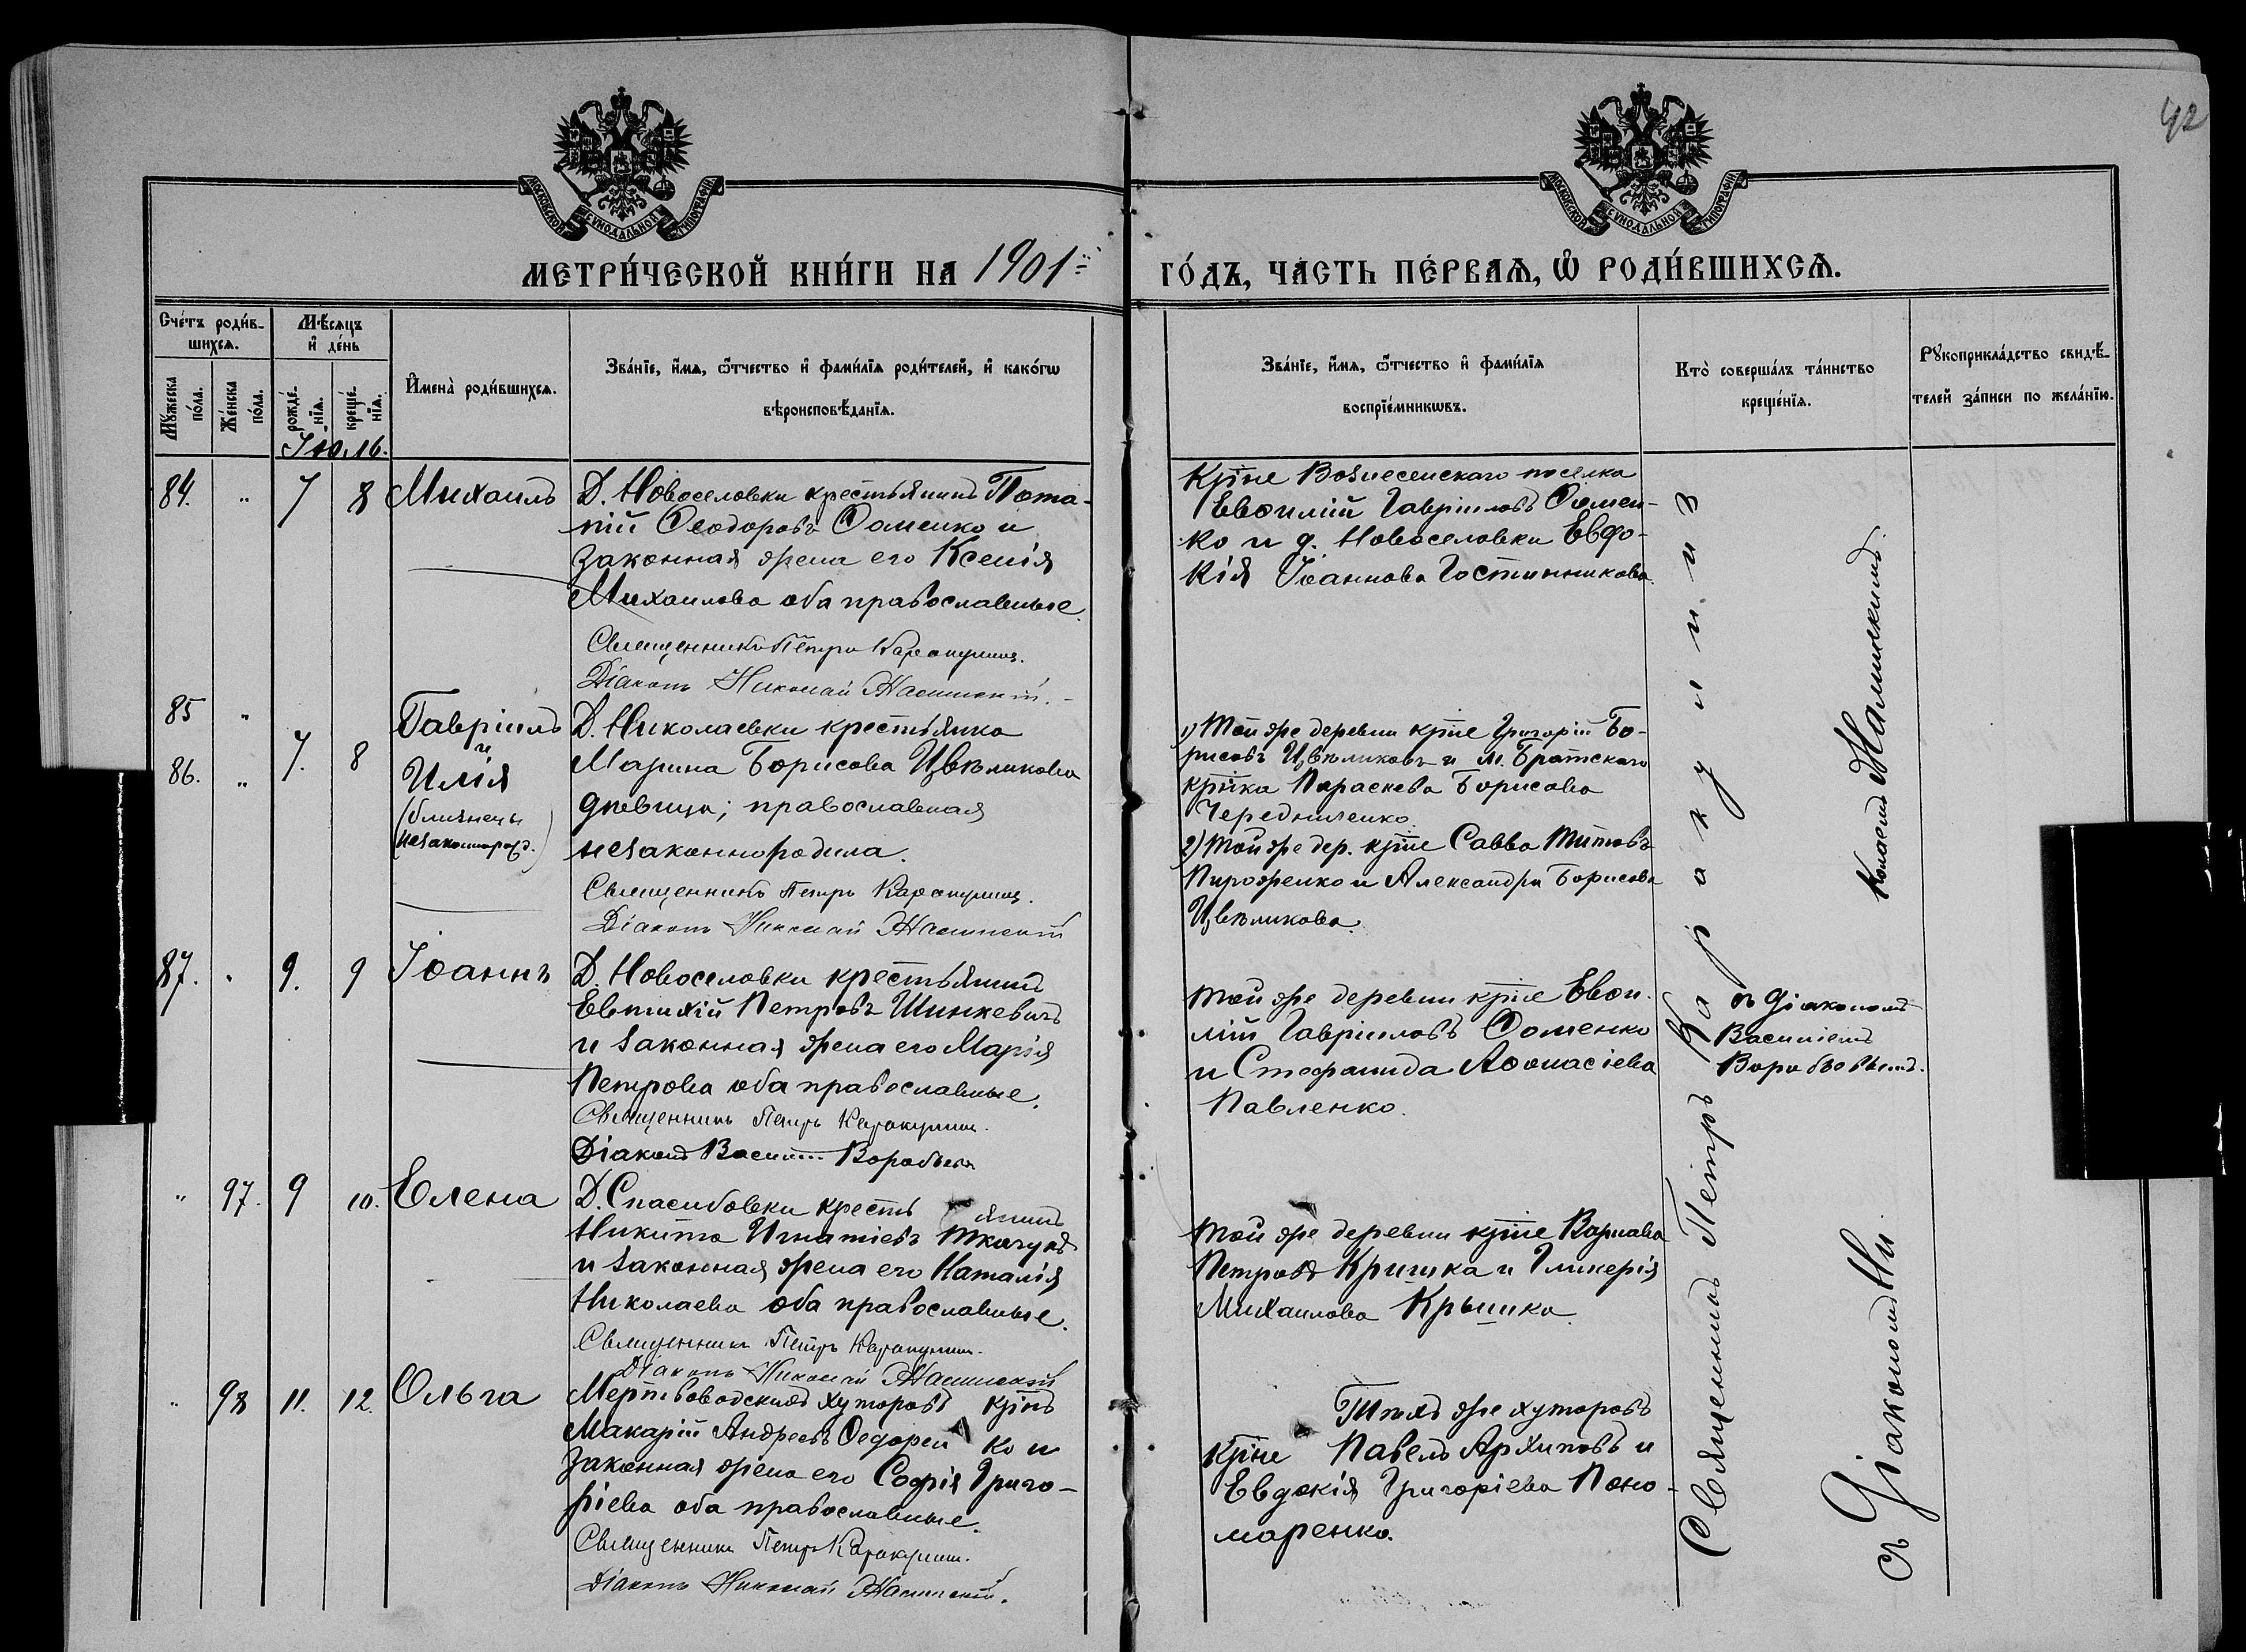 42
МОСКОВСКОЙ СѴНОДАЛЬНОЙ ТИПОГРАФІИ
МОСКОВСКОЙ СѴНОДАЛЬНОЙ ТИПОГРАФІИ
МЕТРИ́ЧЕСКОЙ КНИ́ГИ НА 1901й
ГО́ДЪ, ЧА́СТЬ ПЕ́РВАѦ, Ѡ РОДИ́ВШИХСѦ.
Сче́тъ роди́в-
шихсѧ.
Мѣ́сѧцъ
и҆ де́нь
Мꙋ́жеска по́ла.
Же́нска по́ла.
рожде́-
нїѧ.
креще́-
нїѧ.
И҆мена̀ роди́вшихсѧ.
Зва́нїе, и҆́мѧ, ѻ҆́тчество и҆ фами́лїѧ роди́телей, и҆ како́гѡ
вѣроисповѣ́данїѧ.
Зва́нїе, и҆́мѧ, ѻ҆́тчество и҆ фами́лїѧ
воспрїе́мникѡвъ.
Кто̀ соверша́лъ та́инство
креще́нїѧ.
Рꙋкоприкла́дство свидѣ́-
телей за́писи по жела́нїю.
Іюль.
84. " 7 8 Михаилъ
Д. Новоселовки крестьянинъ Пота-
пій Ѳеодоровъ Ѳоменко и
законная жена его Ксенія
Михаилова оба православные.
Священникъ Петръ Каракулинъ.
Діаконъ Николай
Кр̅не Вознесенскаго поселка
Евѳимій Гавріиловъ Ѳомен-
ко и д. Новоселовки Евдо-
кія Іоаннова Гостинникова.
85 "
86. " 7. 8
Гавріилъ
и
Илія
(близнецы
незаконнорожд.)
Д. Николаевки крестьянка
Марина Борисова Цвѣликова
дѣвица; православная
незаконнородила.
Священникъ Петръ Каракулинъ.
Діаконъ Николай
1) Той же деревни кр̅не Григорій Бо-
рисовъ Цвѣликовъ и м. Братскаго
кр̅нка Параскева Борисова
Чередниченко.
2) Той же дер. кр̅не Савва Титовъ
Пироженко и Александра Борисова
Цвѣликова.
87. " 9. 9 Іоаннъ
Д. Новоселовки крестьянинъ
Евтихій Петровъ Шинкевичъ
и законная жена его Марія
Петрова оба православные.
Священникъ Петръ Каракулинъ.
Діаконъ Василій Воробьевъ
Той же деревни кр̅не Евѳи-
мій Гавріиловъ Ѳоменко
и Стефанида Аѳонасіева
Павленко.
съ діакономъ
Василіемъ
Воробьевымъ.
" 97. 9 10. Елена
Д. Спасибовки крестьянинъ
Никита Игнатіевъ Ткачукъ
и законная жена его Наталія
Николаева оба православные.
Священникъ Петръ Каракулинъ.
Діаконъ Николай
Той же деревни кр̅не Варнава
Петровъ Кришка и Гликерія
Михаилова Крышка
" 98 11. 12. Ольга
Мертвоводскихъ хуторовъ кр̅нъ
Макарій Андреевъ Ѳедоренко и
законная жена его Софія Григо-
ріева оба православные.
Священникъ Петръ Каракулинъ.
Діаконъ Николай
Тѣхъ же хуторовъ
кр̅не Павелъ Архиповъ и
Евдокія Григоріева Поно-
маренко.
Священникъ Петръ Каракулинъ
съ Діакономъ Ни
колаемъ